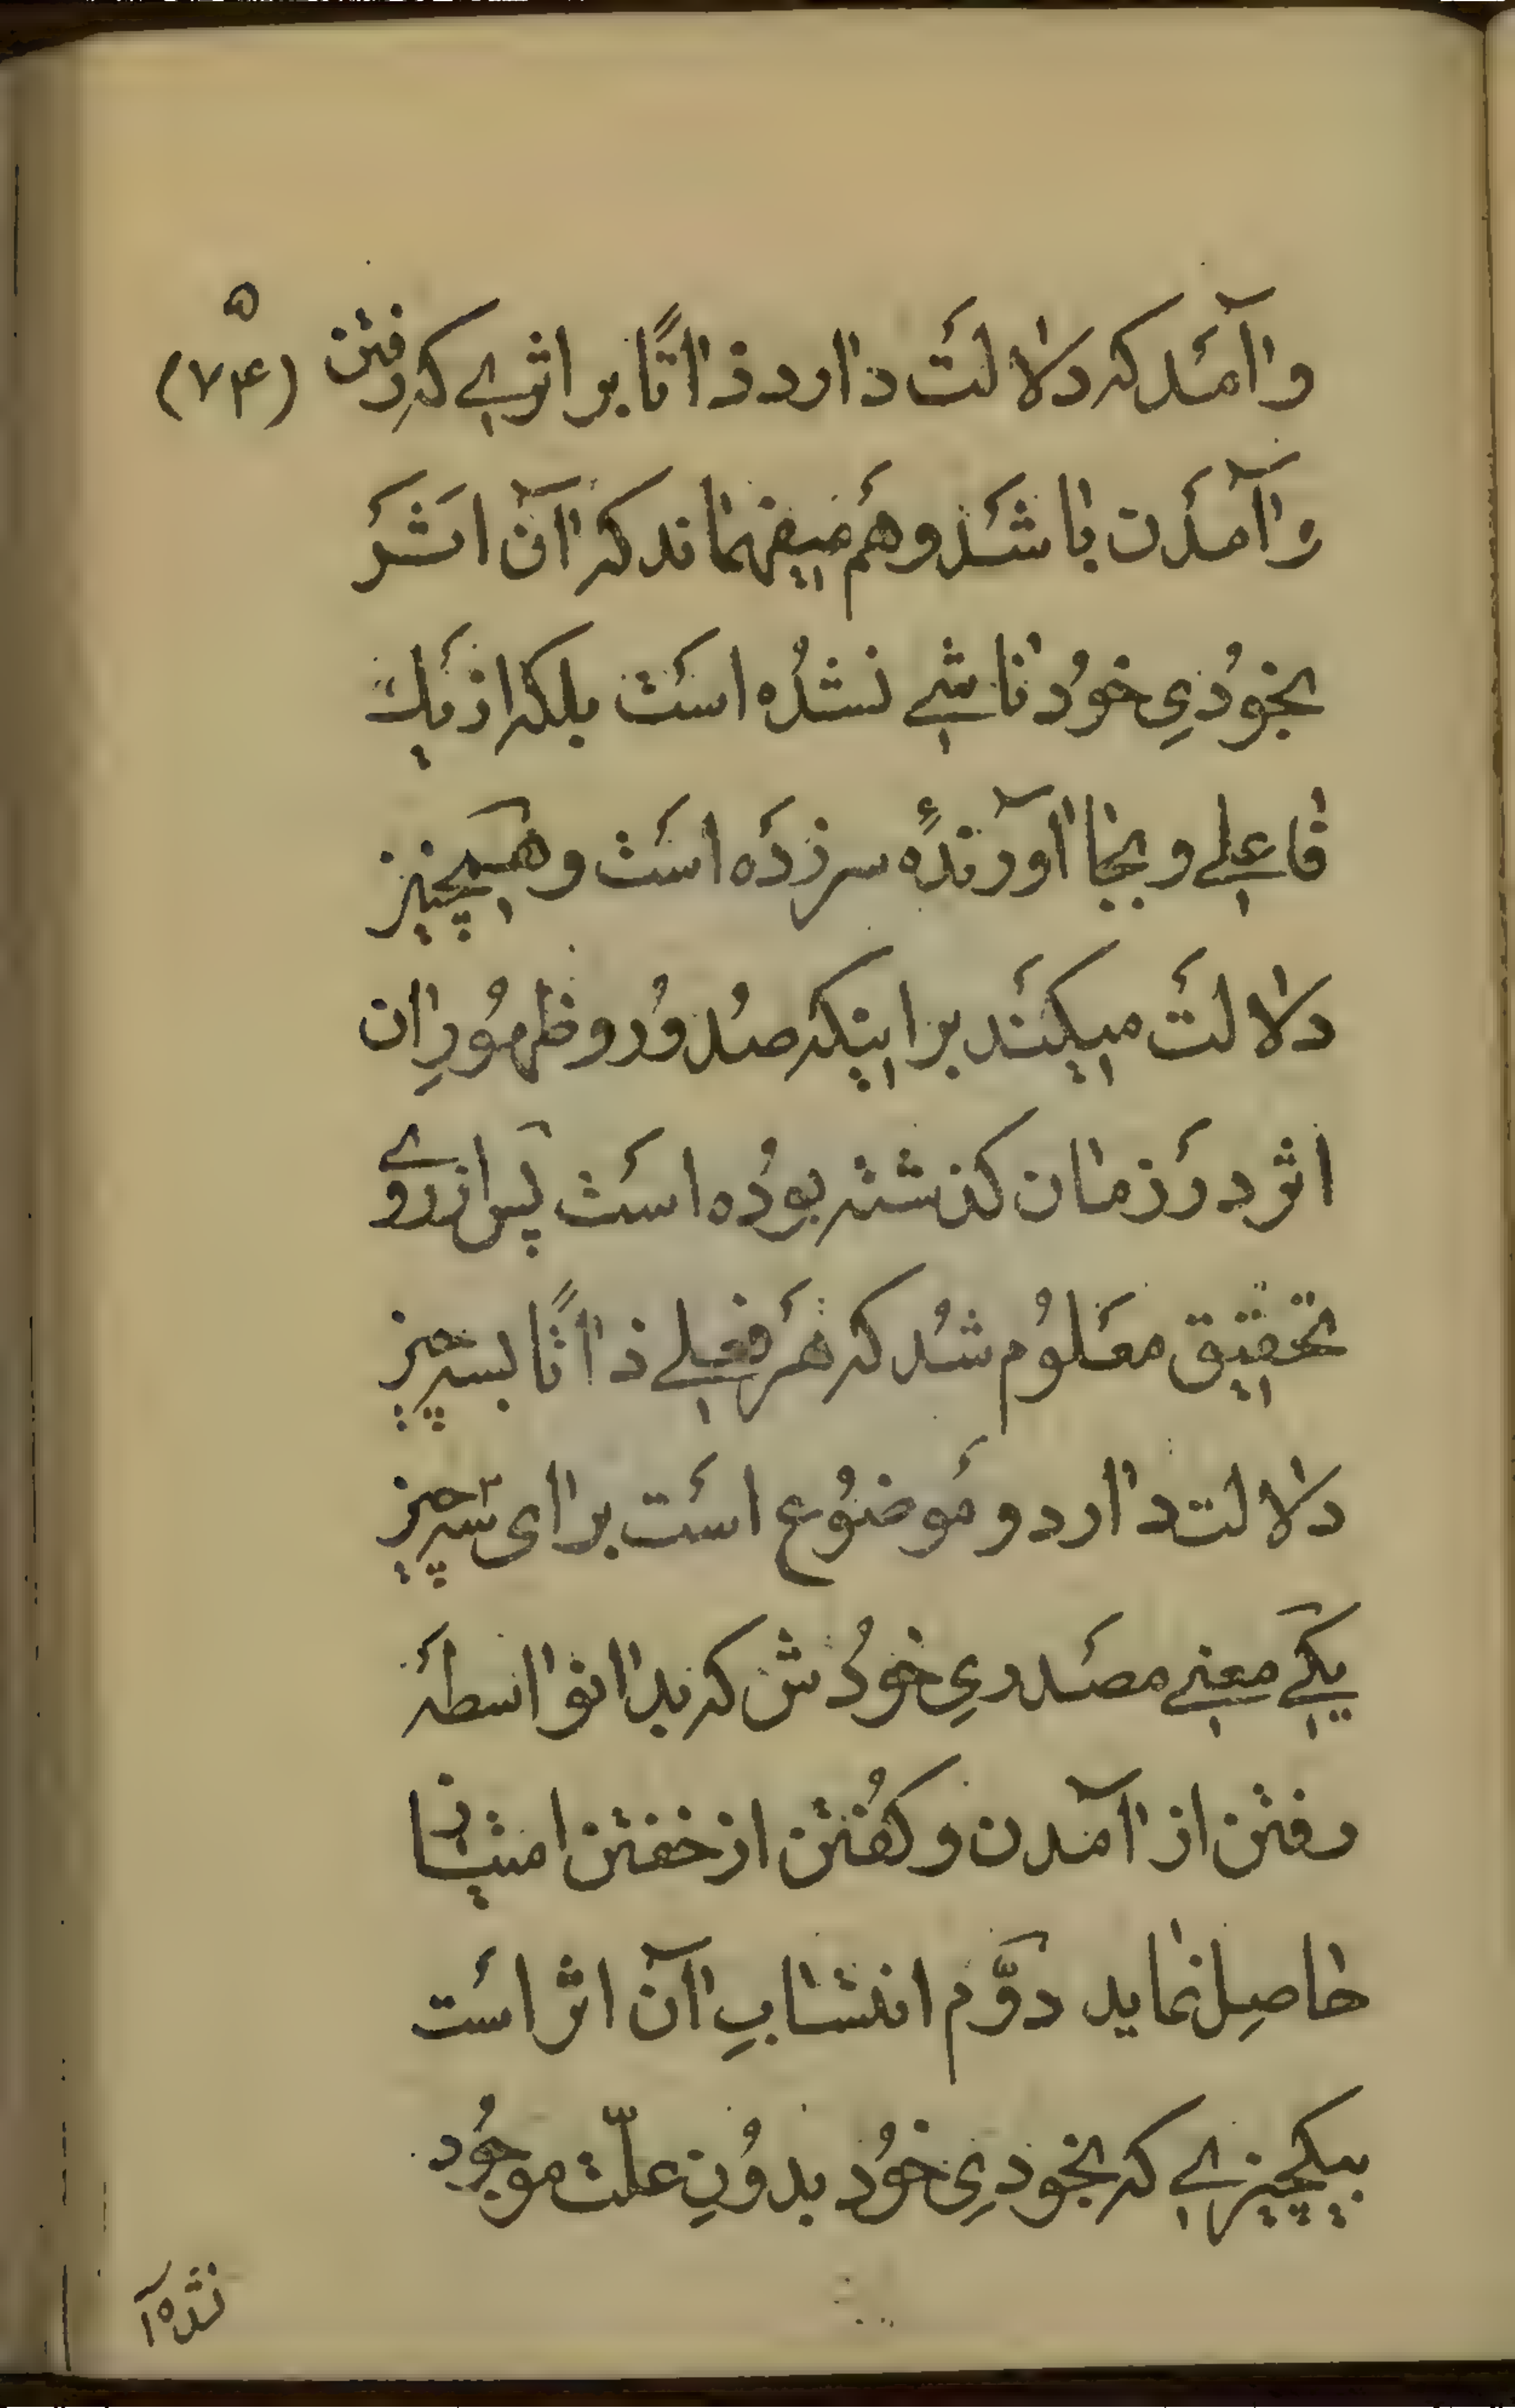 ۵
وآمَد كه دلالَت دارد ذاتًا بر اثری كه رفتن (۷۴)
و آمَدن باشَد و هَم میفهماند كه آن اثَر
بخوُدیِ خوُد ناشی نشدُه است بلكه از یَك
فاعِلی و بجا آورندهٔ سرزدَه است و همچنیز
دلالَت میكنَد بر اینكه صُدوُر و ظهوُرِ ان
اثر در زمان كذشته بوُده است پَس از روی
تحقیق معَلوُم شُد كه هَر فعِلی ذاتًا بسه چیز
دلالت دارد و مَوضوُع است برای سه چیز
یكی معنِی مصَدریِ خوُدش كه بدانواسطهٔ
رفتن از آمدن و كفُتن از خفتن امتیاز
حاصِل نماید دوَّم انتسابِ آن اثر است
بیكچیزی كه بخودیِ خوُد بدوُنِ علّت موجوُد
نشده آ